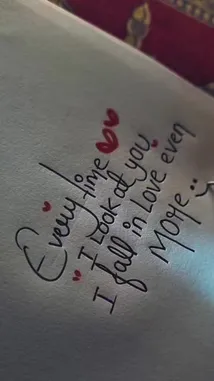 Every time
I Look at you
I fall in Love even
More..